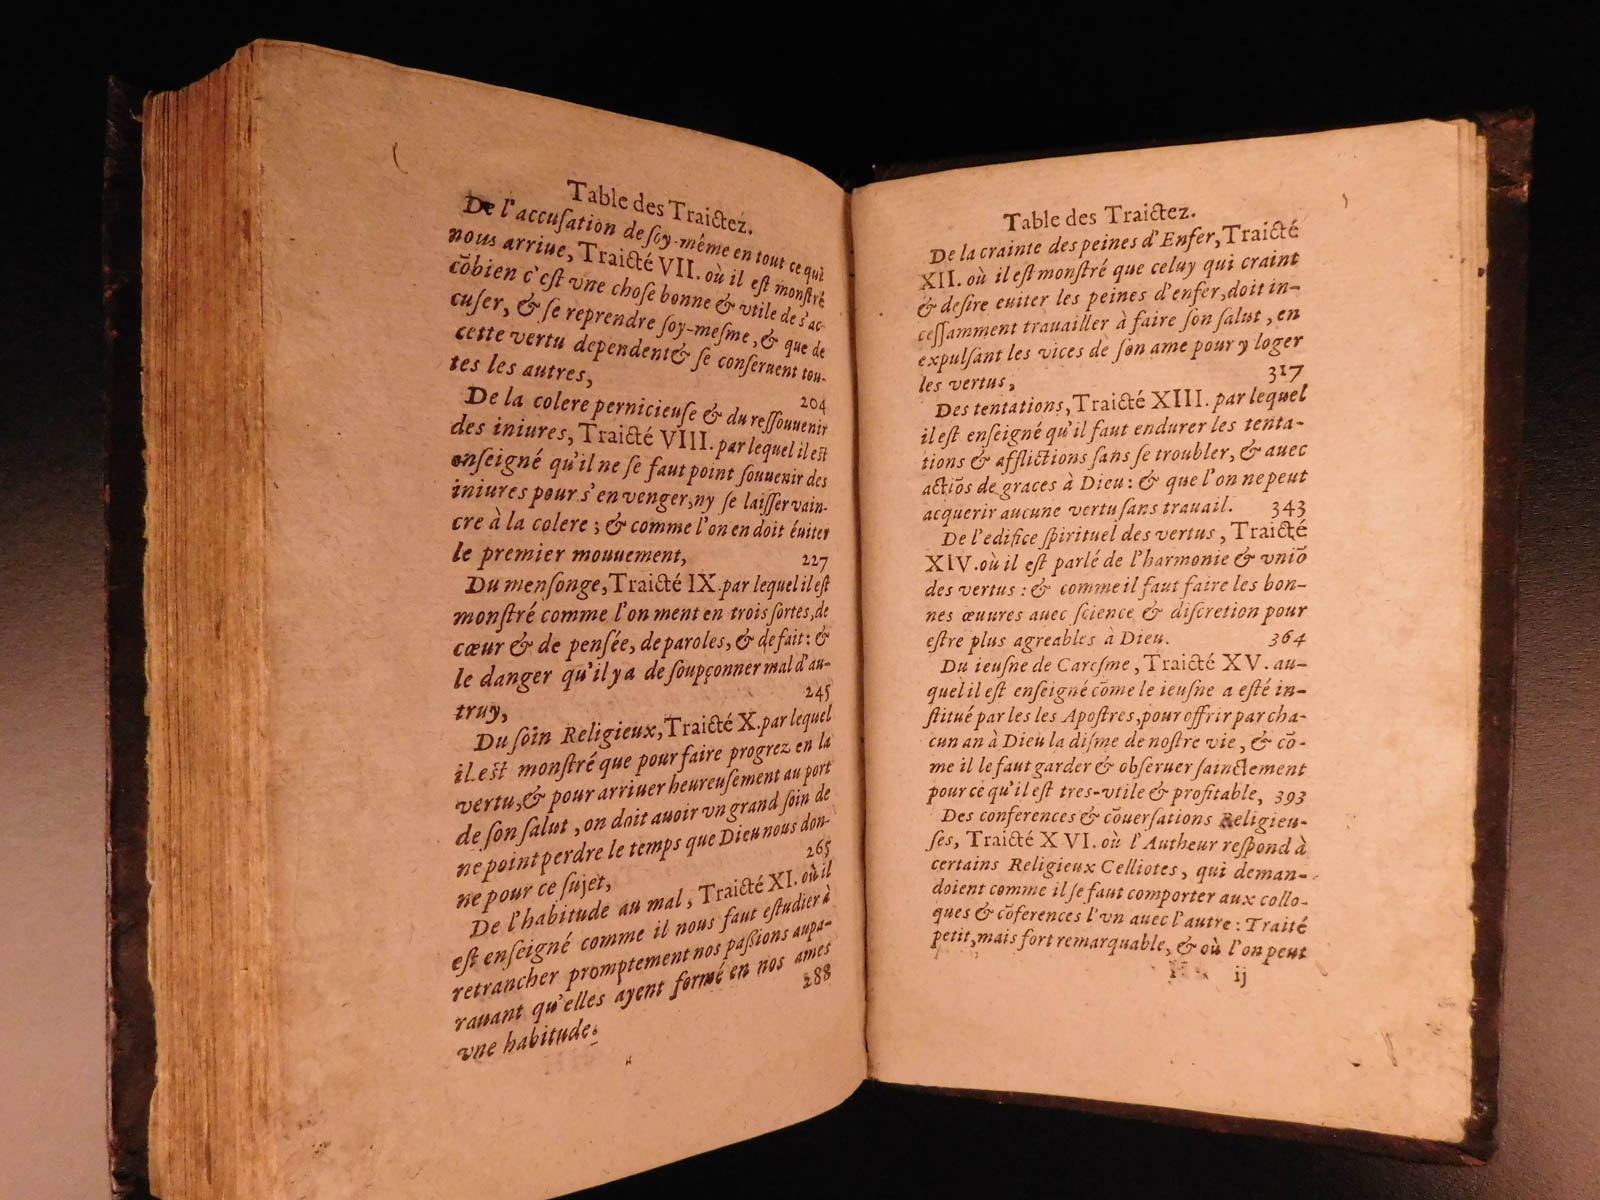 Table des Traictez.
De l'accusation de soy-même en tout ce qui
nous arriue, Traicté VII. où il est monstré
cõbien c'est vne chose bonne & vtile de s'ac-
cuser, & se reprendre soy-mesme, & que de
cette vertu dependent & se conseruent tou-
tes les autres, 204
De la colere pernicieuse & du ressouuenir
des iniures, Traicté VIII. par lequel il est
enseigné qu'il ne se faut point souuenir des
iniures pour s'en venger, ny se laisser vain-
cre à la colere ; & comme l'on en doit éuiter
le premier mouuement, 227
Du mensonge, Traicté IX. par lequel il est
monstré comme l'on ment en trois sortes, de
cœur & de pensée, de paroles, & de fait : &
le danger qu'il y a de soupçonner mal d'au-
truy, 245
Du soin Religieux, Traicté X. par lequel
il est monstré que pour faire progrez en la
vertu, & pour arriuer heureusement au port
de son salut, on doit auoir vn grand soin de
ne point perdre le temps que Dieu nous don-
ne pour ce sujet, 265
De l'habitude au mal, Traicté XI. où il
est enseigné comme il nous faut estudier à
retrancher promptement nos passions aupa-
rauant qu'elles ayent formé en nos ames
vne habitude. 288
Table des Traictez.
De la crainte des peines d'Enfer, Traicté
XII. où il est monstré que celuy qui craint
& desire euiter les peines d'enfer, doit in-
cessamment trauailler à faire son salut, en
expulsant les vices de son ame pour y loger
les vertus, 317
Des tentations, Traicté XIII. par lequel
il est enseigné qu'il faut endurer les tenta-
tions & afflictions sans se troubler, & auec
actiõs de graces à Dieu : & que l'on ne peut
acquerir aucune vertu sans trauail. 343
De l'edifice spirituel des vertus, Traicté
XIV. où il est parlé de l'harmonie & vniõ
des vertus : & comme il faut faire les bon-
nes œuures auec science & discretion pour
estre plus agreables à Dieu. 364
Du ieusne de Caresme, Traicté XV. au-
quel il est enseigné cõme le ieusne a esté in-
stitué par les les Apostres, pour offrir par cha-
cun an à Dieu la disme de nostre vie, & cõ-
me il le faut garder & obseruer sainctement
pour ce qu'il est tres-vtile & profitable, 393
Des conferences & cõuersations Religieu-
ses, Traicté XVI. où l'Autheur respond à
certains Religieux Celliotes, qui deman-
doient comme il se faut comporter aux collo-
ques & cõferences l'vn auec l'autre : Traité
petit, mais fort remarquable, & où l'on peut
ij